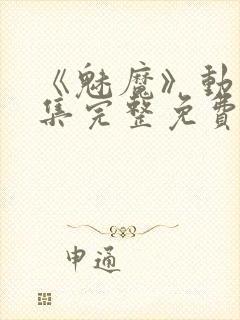 《魅魔》動
集完整免費
申通